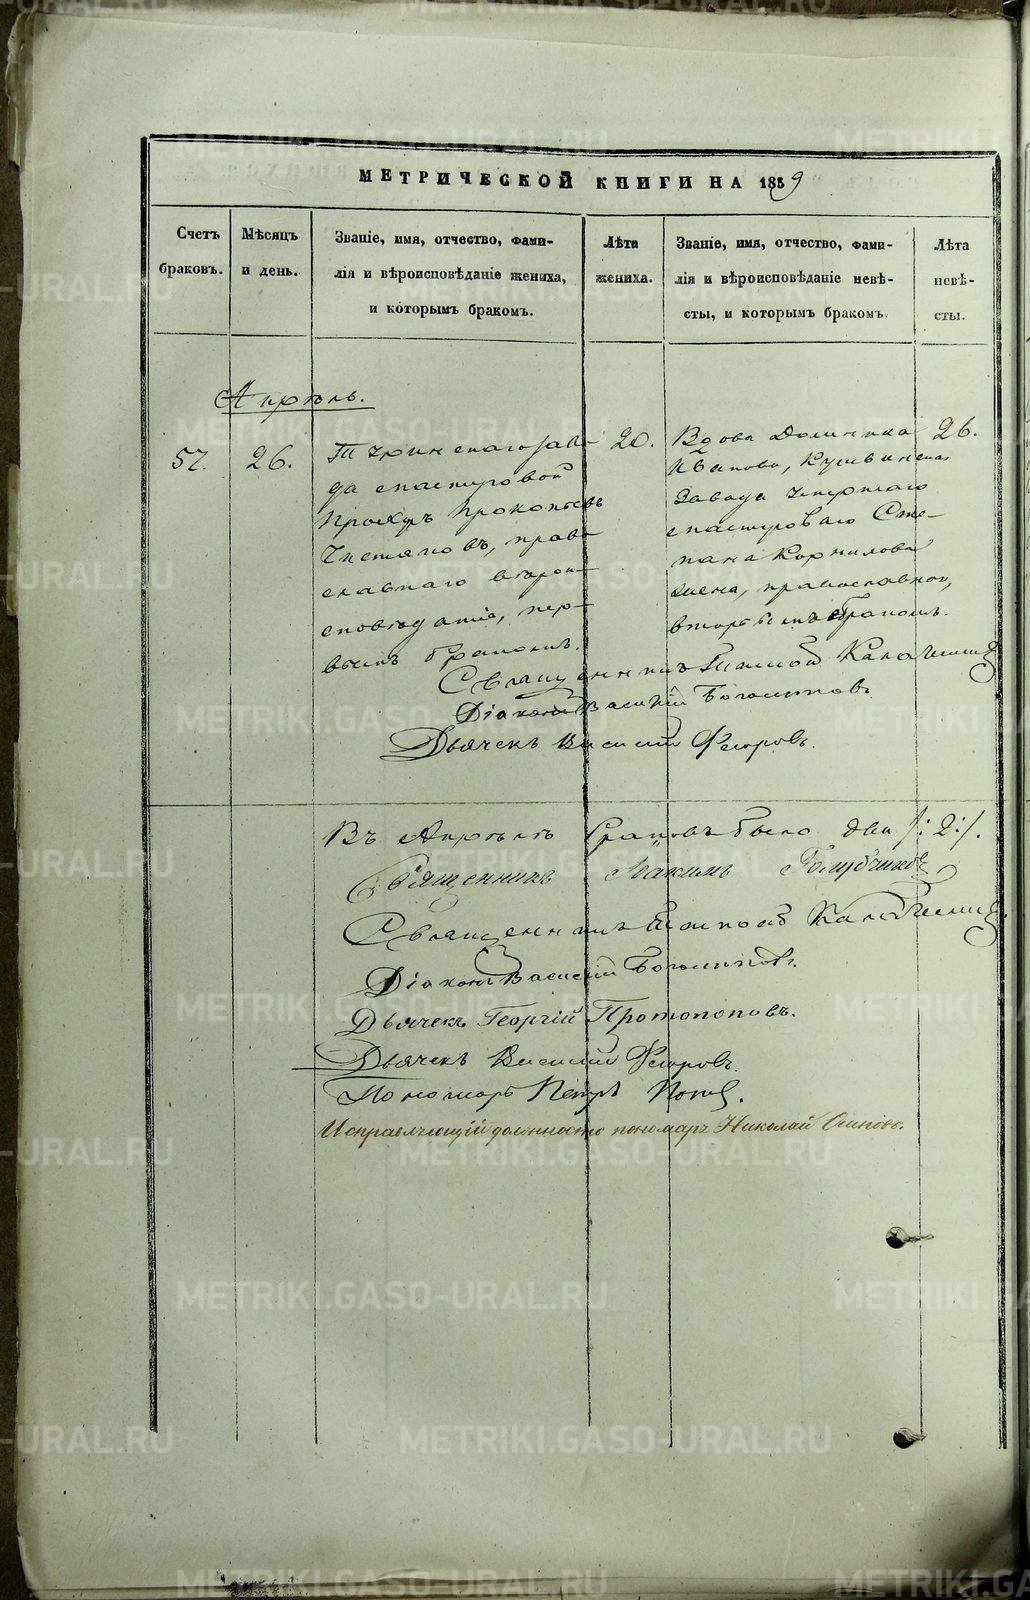 МЕТРИЧЕСКОЙ КНИГИ НА 1859
Счетъ браковъ.
Мѣсяцъ и день.
Званіе, имя, отчество, фами-
лія и вѣроисповѣданіе жениха,
и которымъ бракомъ.
Лѣта жениха.
Званіе, имя, отчество, фами-
лія и вѣроисповѣданіе невѣ-
сты, и которымъ бракомъ.
Лѣта невѣ-
сты.
Апрѣль.
57.
26.
Туринскаго заво-
да мастеровой
Прохоръ Прокопьевъ
Чистяковъ, право
славнаго вѣрои-
сповѣданія, пер-
вымъ бракомъ.
20.
Вдова Долиника
Иванова, Кушвинска
завода умершаго
мастероваго Сте-
пана Корнилова
жена, православной,
вторымъ бракомъ.
26.
Священникъ Тимофей
Діаконъ Василій Боголѣповъ
Дьячекъ Василій Флеровъ.
Въ Апрѣлѣ браковъ было два /:2:/.
Священникъ Голубчиковъ
Священникъ Тимофей
Діаконъ Василій Боголѣповъ.
Дьячекъ Георгій Протопоповъ.
Дьячекъ Василій Флеровъ.
Пономарь Петръ Поповъ.
Исправляющій должность пономаря Николай Осиповъ.
METRIKI.GASO-URAL.RU